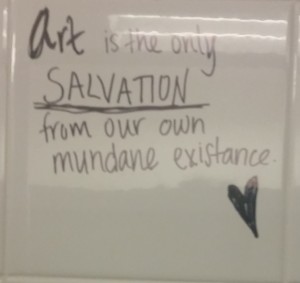 Art is the only
SALVATION
from our own
mundane existance.